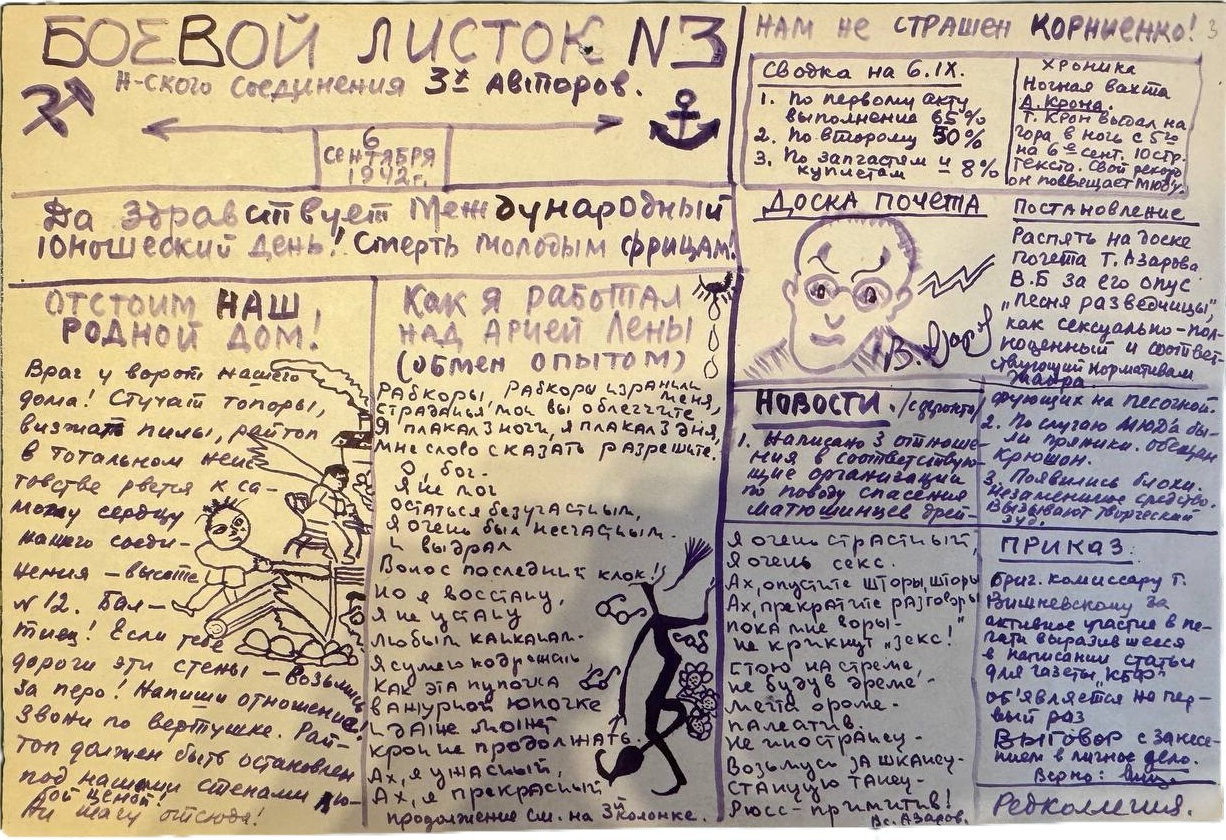 БОЕВОЙ ЛИСТОК N3
Н-ского соединения 3х Авторов.
6
СЕНТЯБРЯ
1942г.
Да Здравствует Международный
Юношеский День! Смерть молодым фрицам!
ОТСТОИМ НАШ
РОДНОЙ ДОМ!
Враг у ворот нашего
дома! Стучат топоры,
визжат пилы, райтоп
в тотальном неис-
товстве рвется к са-
мому сердцу
нашего соеди-
нения – высоте
N 12. Бал-
тиец! Если тебе
дороги эти стены – возьмись
за перо! Напиши отношение!
Звони по вертушке. Рай-
топ должен быть остановлен
под нашими стенами лю-
бой ценой!
Ни шагу отсюда!
Как я работал
над арией Лены
(обмен опытом)
Рабкоры, рабкоры изранили меня,
Страданья мои вы облегчите
Я плакал 3 ночи, я плакал 3 дня,
Мне слово сказать разрешите.
О, бог.
Я не мог
Остаться безучастным,
Я очень был несчастным.
И выдрал
Волос последний клок!
Но я восстану,
Я не устану
Любым канканам.
Я сумею подражать
Как эта пупочка
в ажурной юпочке
И даже может
кроп не продолжать.
Ах, я ужасный,
Ах, я прекрасный
продолжение см. на 3й колонке.
НАМ НЕ СТРАШЕН КОРНИЕНКО!
3
Сводка на 6.IX.
1. По первому акту
выполнение 65%
2. По второму 50%
3. По запчастям и
куплетам – 8%
ХРОНИКА
Ночная вахта
А. Крона.
Т. Крон выдал на
гора в ночь с 5го
на 6е сент. 10 стр.
текста. Свой рекорд
он посвящает МЮДу.
ДОСКА ПОЧЕТА
В. Азар
Постановление
Распять на доске
почета Т. Азарова
В.Б за его опус
„Песня разведчицы",
как сексуально-пол-
ноценный и соответ-
ствующий нормативам
жанра.
НОВОСТИ. /
1. Написано 3 отноше-
ния в соответствую-
щие организации
по поводу спасения
матюшинцев дрей-
фующих на песочной.
2. По случаю МЮДа бы-
ли пряники. Обещан
крюшон.
3. Появились блохи.
Незаменимое средство.
Вызывают творческий
зуд.
Я очень страстный,
Я очень секс.
Ах, опустите шторы, шторы
Ах, прекратите разговоры
пока мне воры-
не крикнут „зекс!"
Стою на стреме,
не будув дреме-
мента ороме-
палеатив.
Не инострану-
Возьмусь за шкансу-
Станцую танец-
Рюсс-примитив!
Вс. Азаров.
ПРИКАЗ.
Бриг. комиссару т.
Вишневскому за
активное участие в пе-
чати выразившееся
в написании статьи
для газеты „КБФ"
об'является на пер-
вый раз
Выговор с занесе-
нием в личное дело.
Верно:
Редколлегия.